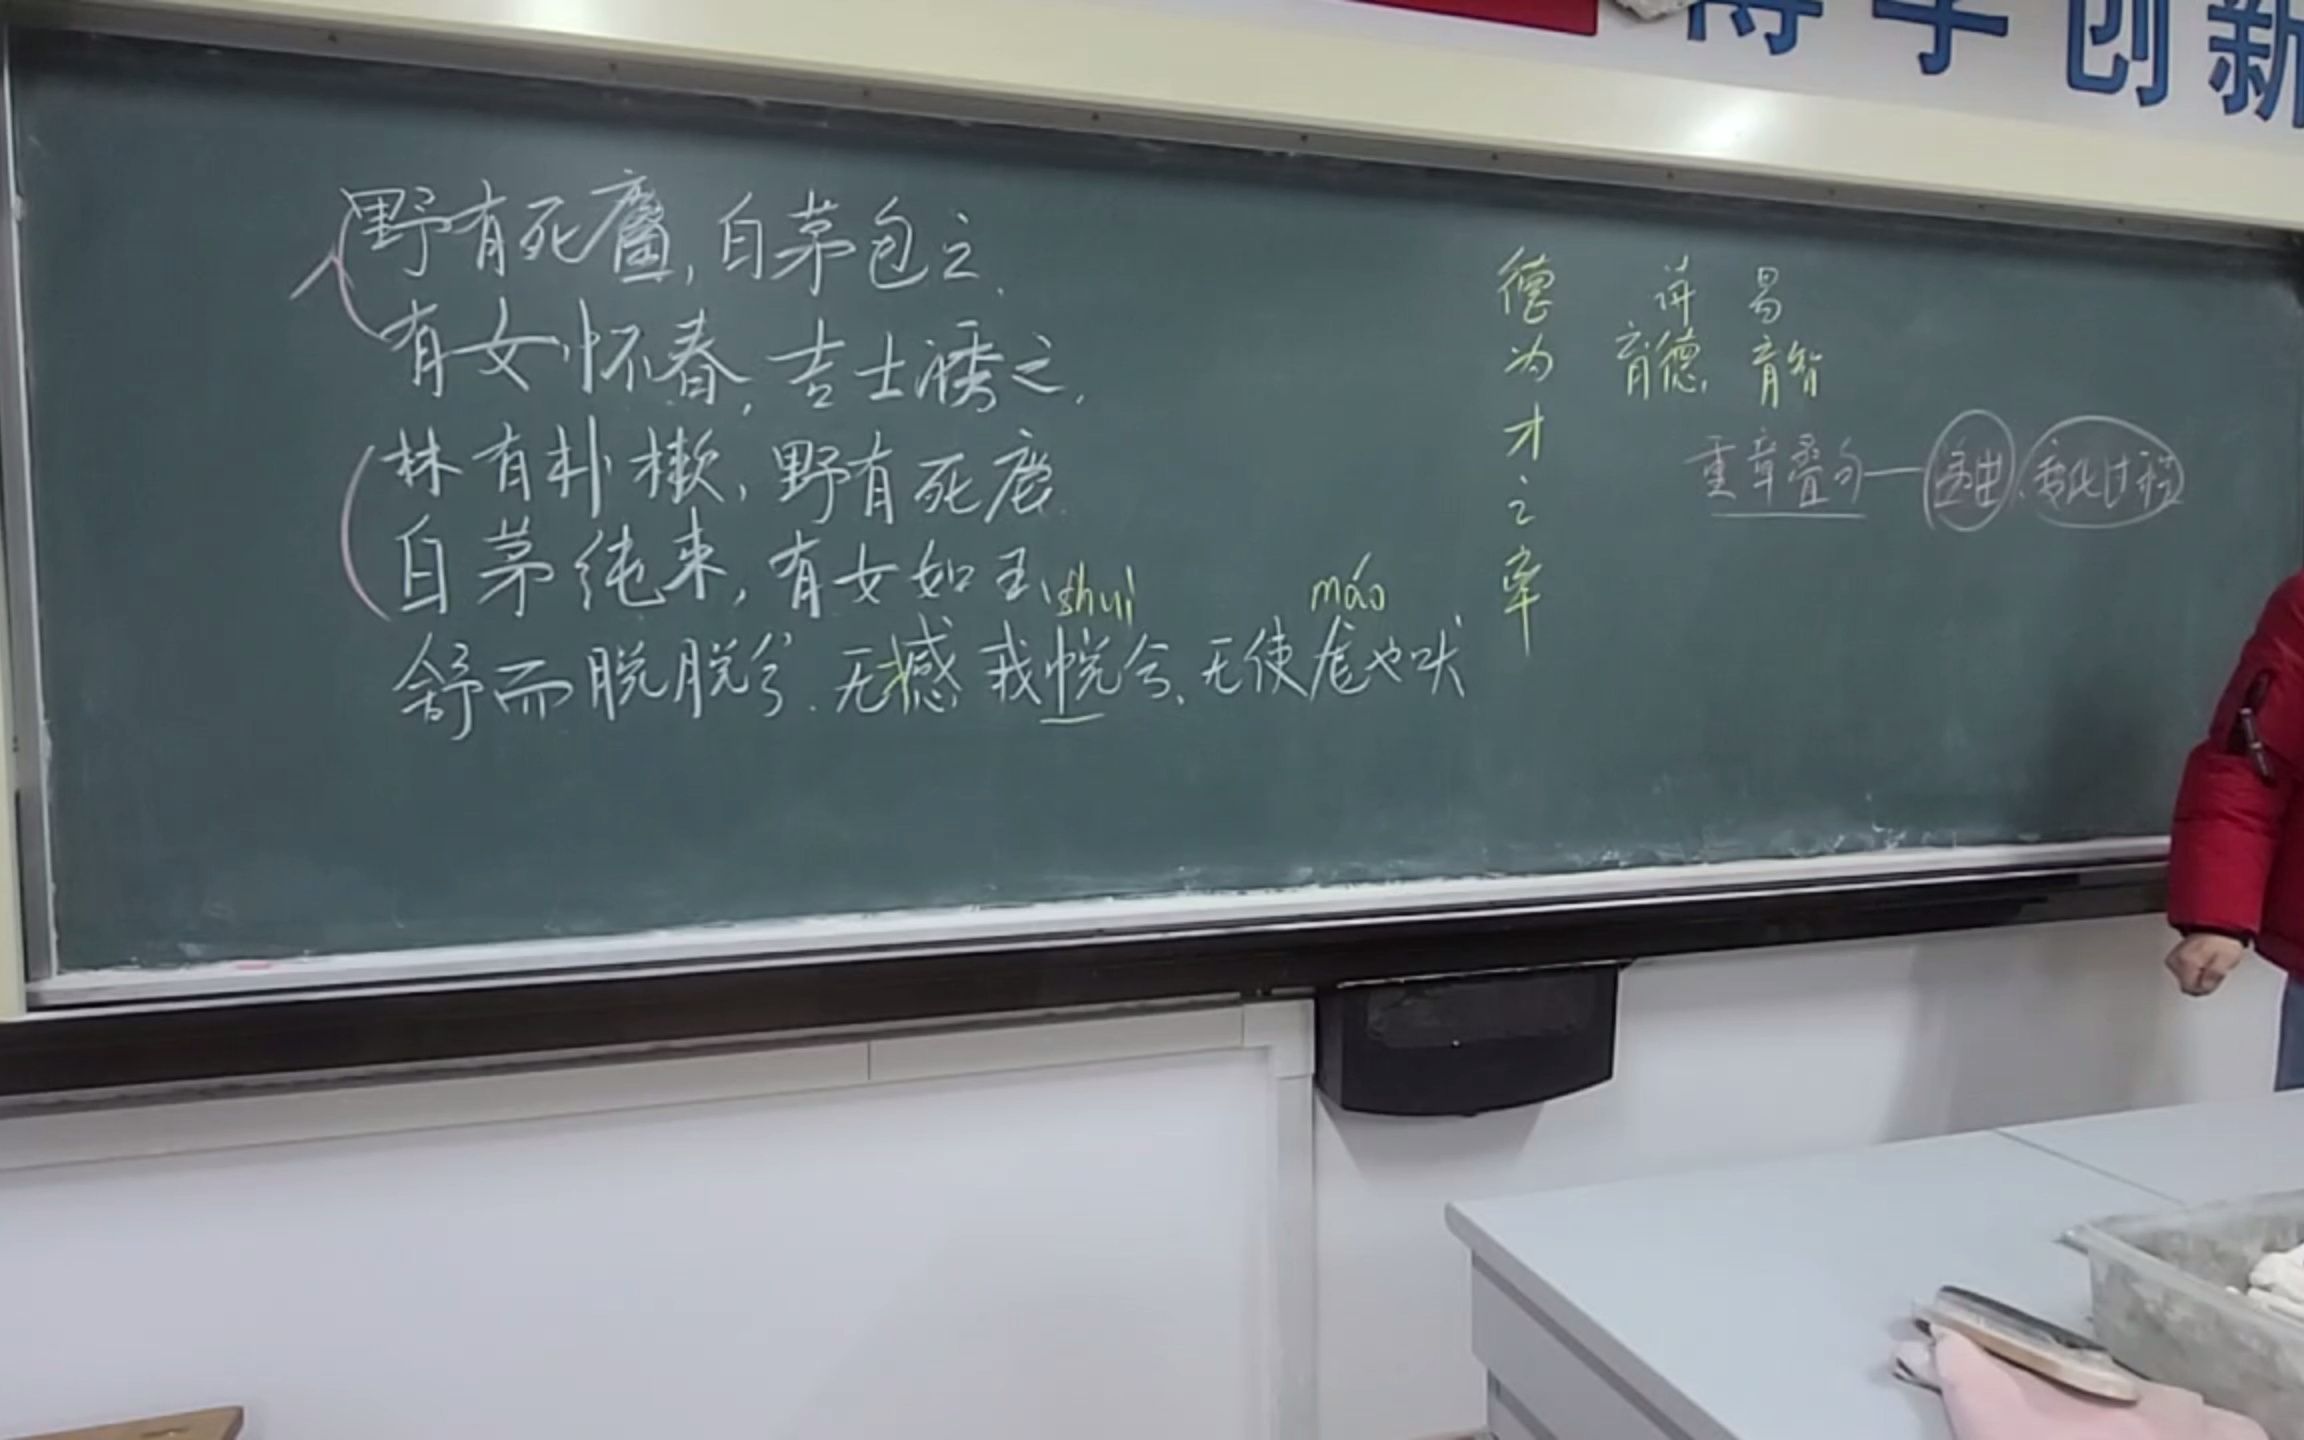 博学创新
野有死麕,白茅包之.
有女怀春,吉士诱之.
林有朴樕,野有死鹿.
白茅纯束,有女如玉.
shui máo
舒而脱脱兮.无撼我帨兮.无使尨也吠
德为才之率
讲 易
育德, 育智
重章叠句—突出、变化过程